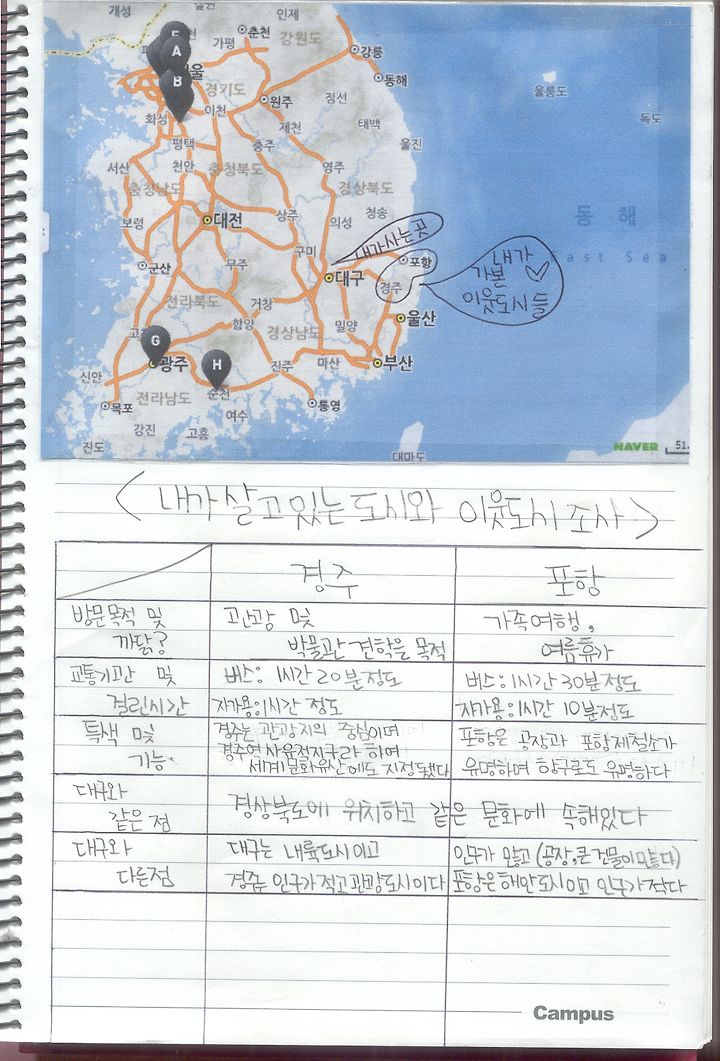 개성
철원
인제
춘천
가평
강원도
강릉
동해
A
B
경기도
원주
정선
울릉도
독도
화성
이천
제천
태백
평택
충주
울진
서산
천안
충청북도
영주
충청남도
경상북도
보령
대전
상주
의성
청송
동 해
East Sea
내가 사는 곳
구미
군산
무주
대구
포항
경주
내가
가본
이웃도시 들
전라북도
거창
함양
경상남도
밀양
울산
G
광주
H
진주
마산
부산
신안
전라남도
순천
목포
여수
통영
강진
고흥
진도
대마도
NAVER
51.
<내가 살고 있는 도시와 이웃도시 조사>
경주 포항
방문목적 및 고관광 및 가족여행,
까닭? 박물관 견학을 목적 여름휴가
교통기관 및 버스: 1시간 20분 정도 버스: 1시간 30분 정도
걸린시간 자가용: 1시간 정도 자가용: 1시간 10분정도
특색 및 경주는 관광지의 중심이며 포항은 공장과 포항제철소가
기능. 경주역사유적지구라 하며 유명하며 항구로도 유명하다
세계문화유산에도 지정됐다
대구와
같은 점 경상북도에 위치하고 같은 문화에 속해있다
대구와 대구는 내륙도시이고 인구가 많고 (공장, 큰 건물이 많다)
다른점 경주는 인구가 적고 관광도시이다 포항은 해안도시이고 인구가 적다
Campus